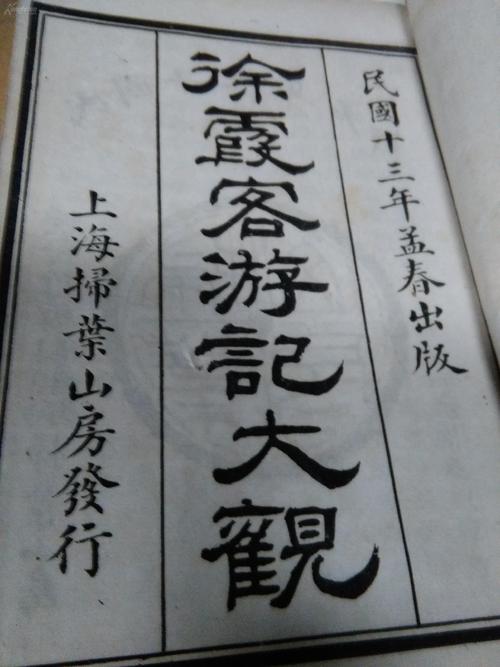 民國十三年孟春出版
徐霞客游記大觀
上海掃葉山房發行